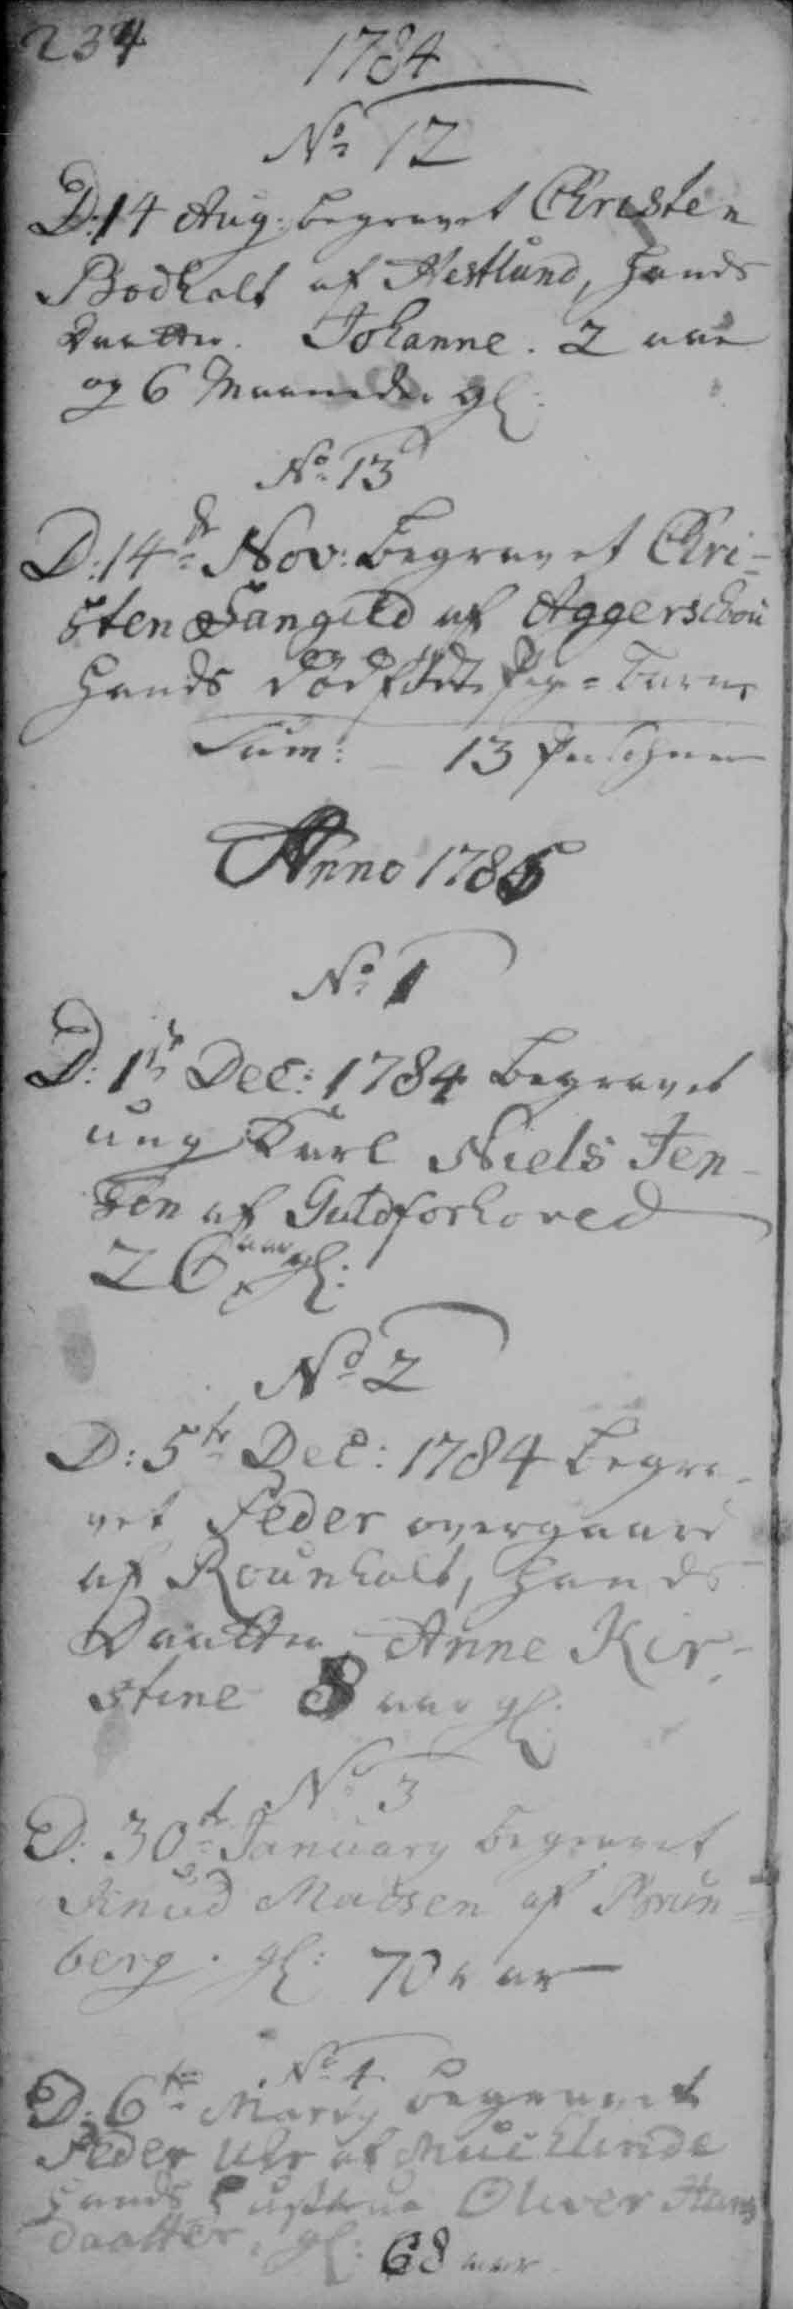 234
1784
No 12
D: 14 Aug: begravet Christen
Bodholt af Hestlund, hands
Daatter. Johanne. 2 aar
og 6 Maaneder gl:
No 13
D: 14de Nov: begravet Chri-
sten Fangeld af Aggerschou
hands dødfødt Pige-barn
Sum: 13 Personer
Anno 1785
No 1
D: 1te Dec: 1784 begravet
ung Karl Niels Jen-
sen af Guldforhoved
26 aar gl:
No 2
D: 5te Dec: 1784 begra-
vet Peder overgaard
af Rounholt, hands
Daatter, Anne Kir-
stine 8 aar gl:
No 3
D: 30te January begravet
Knud Madsen af Brun-
berg. gl: 70 aar
No 4
D: 6te Marty begravet
Peder Uhr af
hands hustrue Oliver Hans
daatter, gl: 68 aar